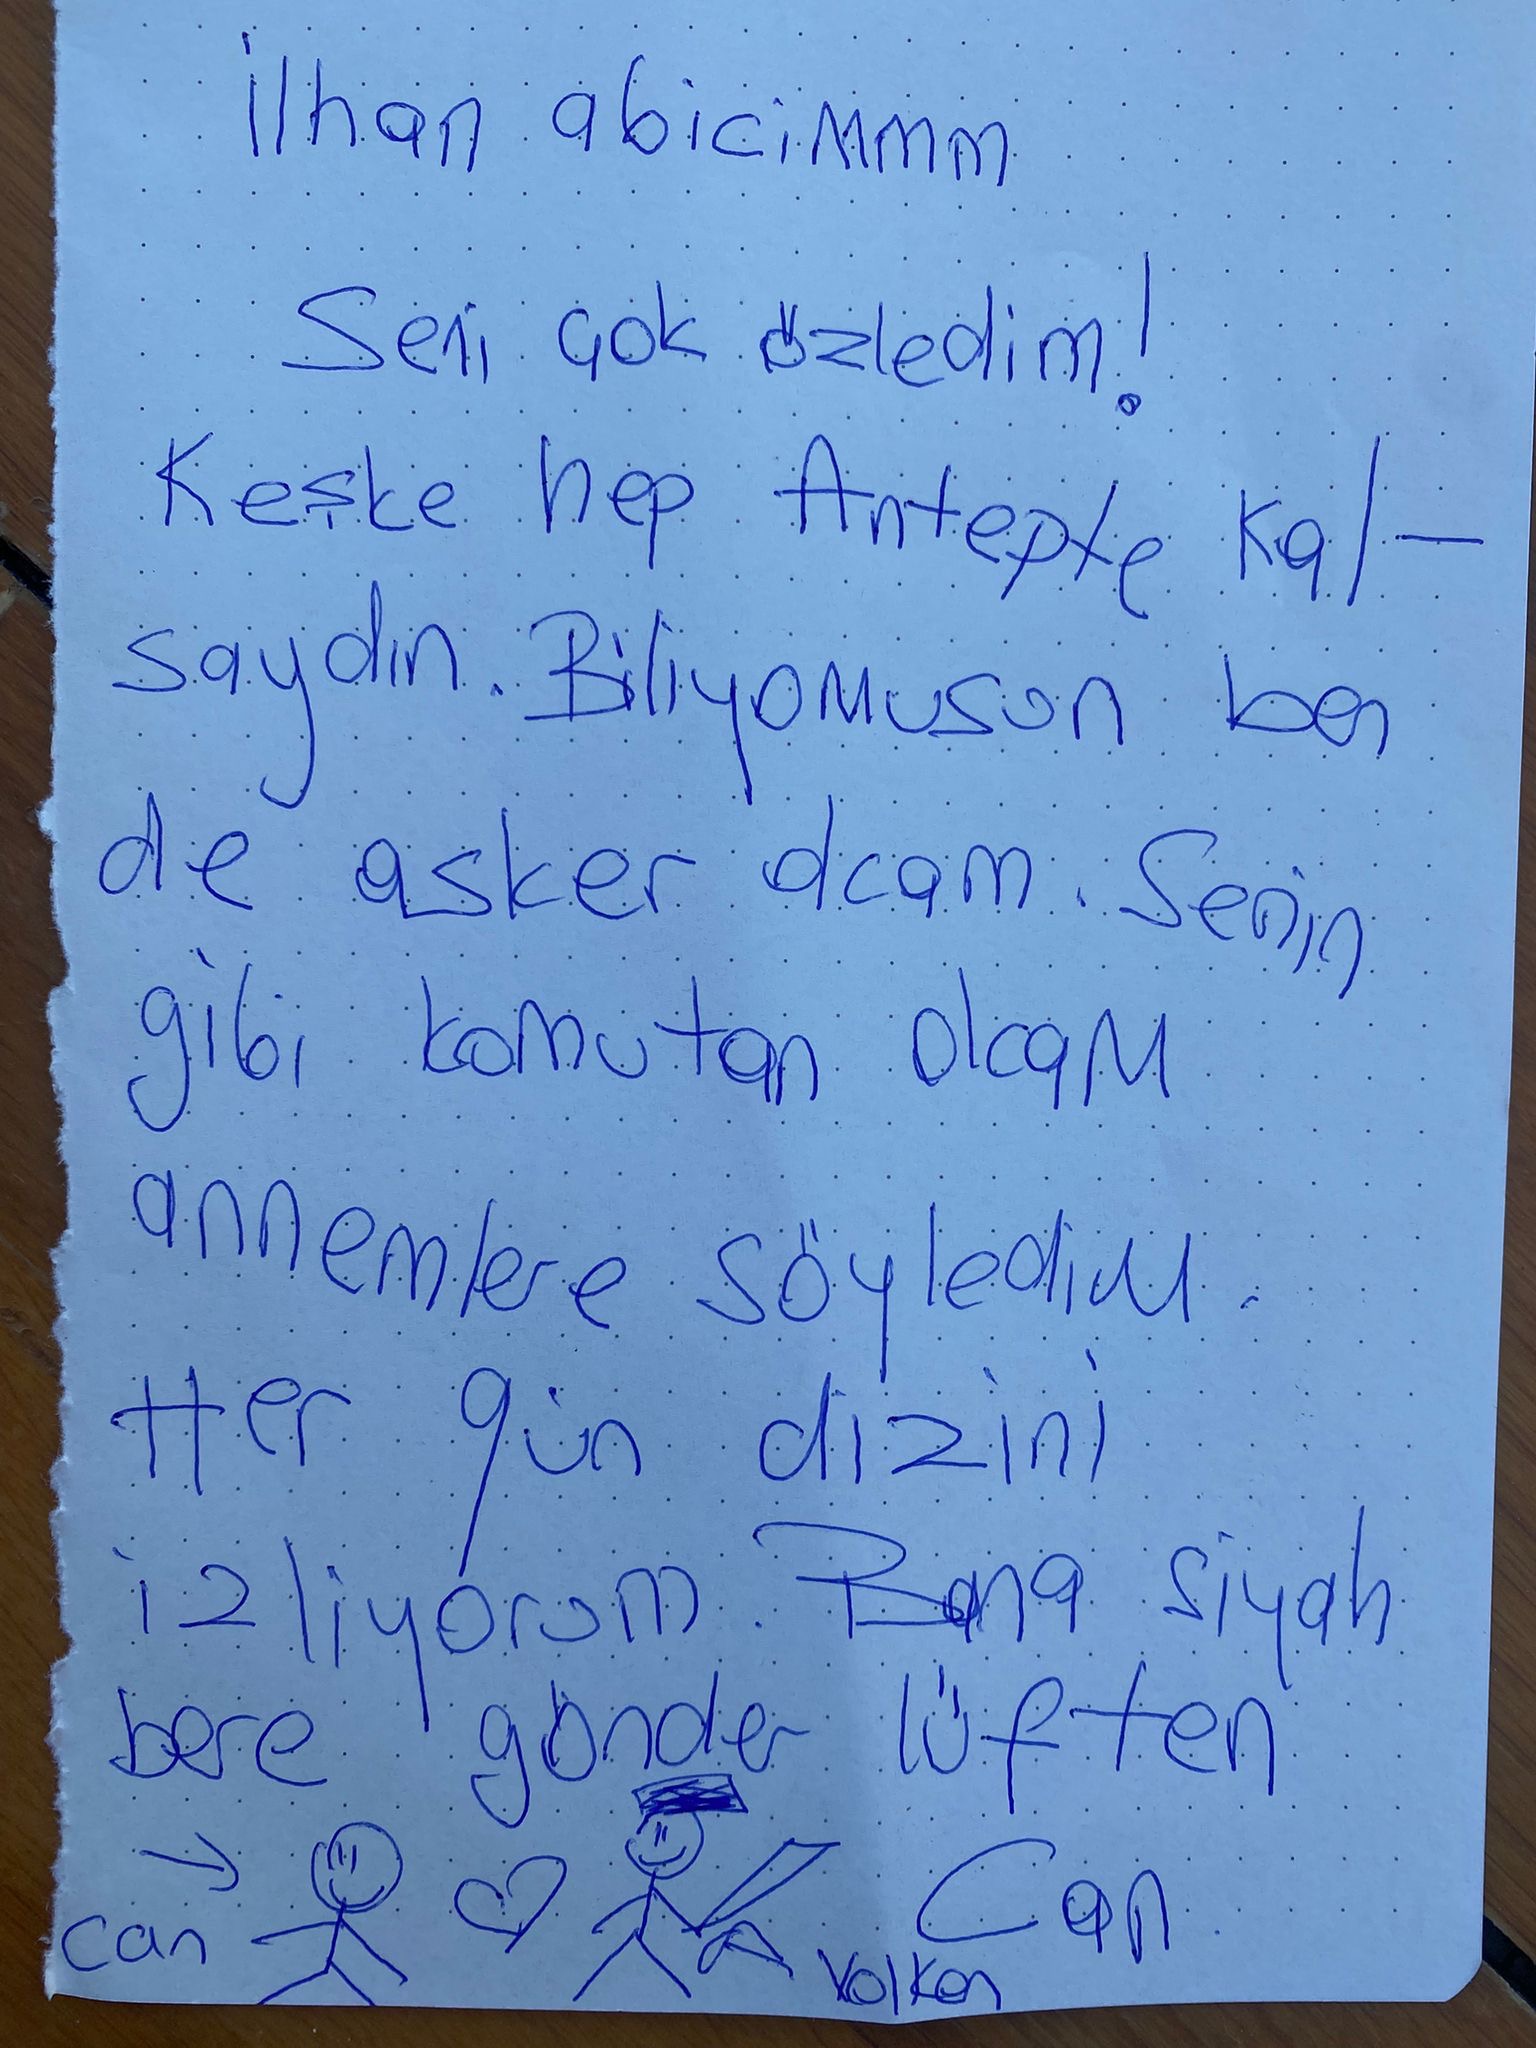 ilhan abicimmm
Seni çok özledim!
Keşke hep Antepte kal-
saydın. Biliyomusun ben
de asker olcam. Senin
gibi komutan olcam
annemlere söyledim.
Her gün dizini
izliyorum. Bana siyah
bere gönder lüften
Can
can
Volkan